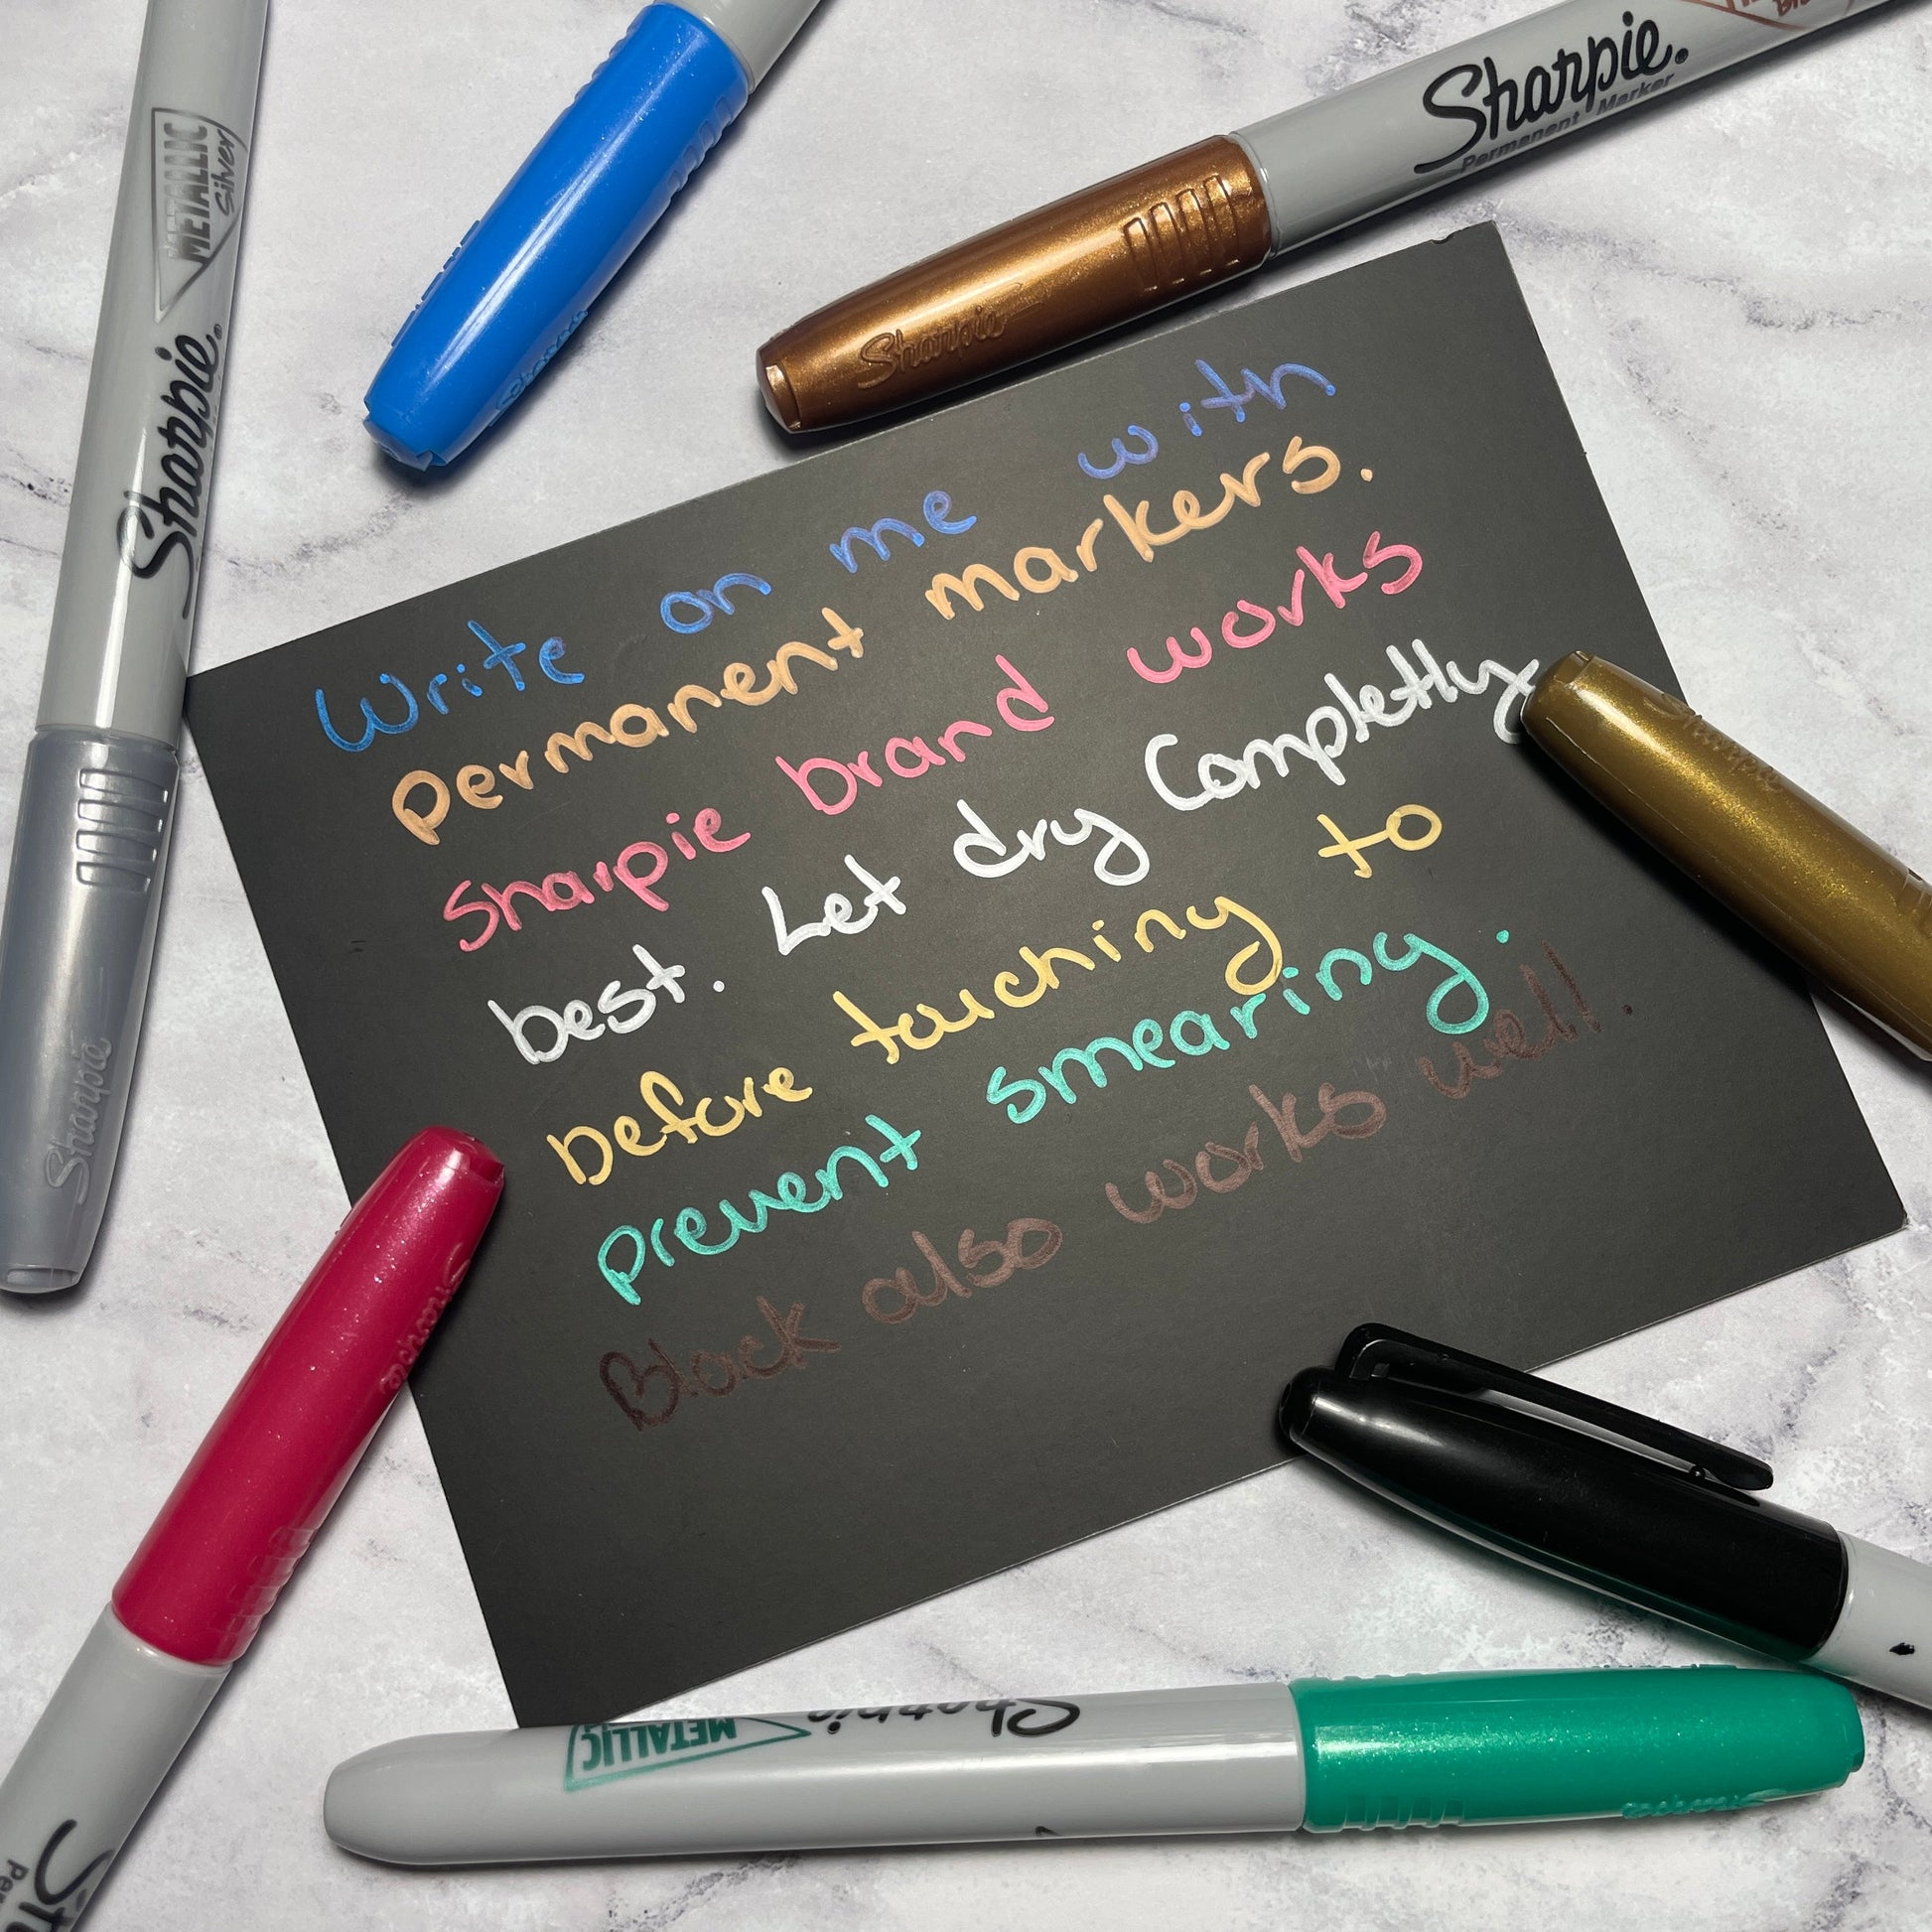 METALLIC
Silver
Sharpie®
Sharpie
Sharpie®
Permanent Marker
Sharpie
Write on me with
permanent markers.
Sharpie brand works
best. Let dry Completly
before touching to
prevent smearing.
Black also works well.
Sharpie
Sharpie
METALLIC
Sharpie